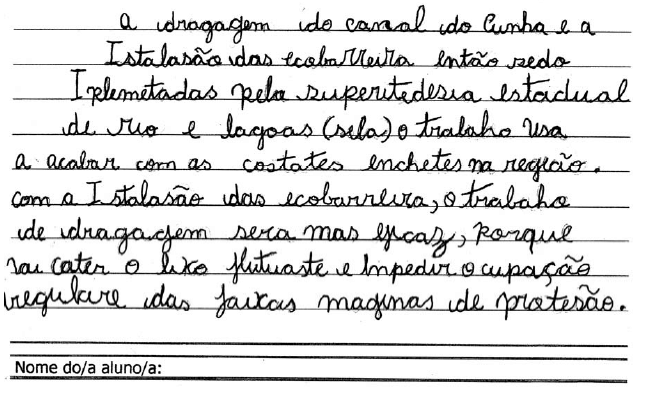 a dragagem do canal do Cunha e a
Istalasão das ecobarreira então sedo
Iplemetadas pela superitedesia estadual
de rio e lagoas (sela) o trabalho usa
a acabar com as costates enchetes na região.
com a Istalasão das ecobarreira, o trabaho
de dragagem sera mas eficaz, porque
vai cater o lixo flutuaste e Impedir o cupação
iregulare das faixas maginas de protesão.
Nome do/a aluno/a: